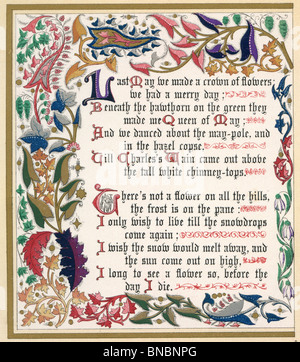 Last May we made a crown of flowers;
we had a merry day;
Beneath the hawthorn on the green they
made me Queen of May;
And we danced about the may-pole, and
in the hazel copse,
Till Charles's Wain came out above
the tall white chimney-tops
There's not a flower on all the hills,
the frost is on the pane;
I only wish to live till the snowdrops
come again;
I wish the snow would melt away, and
the sun come out on high,
I long to see a flower so, before the
day I die.
alamy stock photo
BNBNPG
www.alamy.com